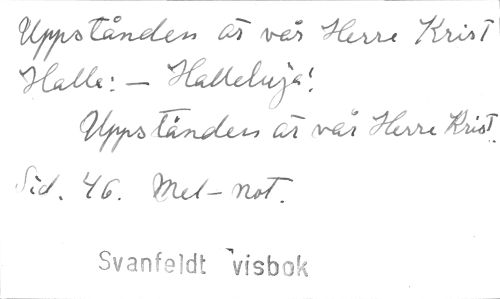 Uppstånden är vår Herre Krist
Halle: – Halleluja!
Uppstånden är vår Herre Krist.
Sid. 46. Mel-not.
Svanfeldt visbok